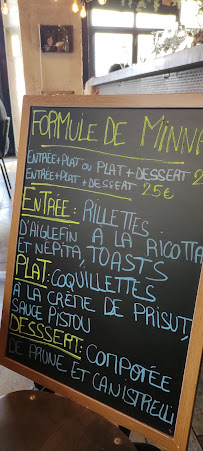 FORMULE DE MINNA
ENTRÉE+PLAT OU PLAT+DESSERT 2
ENTRÉE+PLAT+DESSERT 25€
ENTRÉE: RILLETTES
D'AIGLEFIN À LA RICOTTA
ET NEPITA, TOASTS
PLAT: COQUILLETTES
À LA CRÈME DE PRISUT,
SAUCE PISTOU
DESSSERT: COMPOTÉE
DE PRUNE ET CANISTRELLI